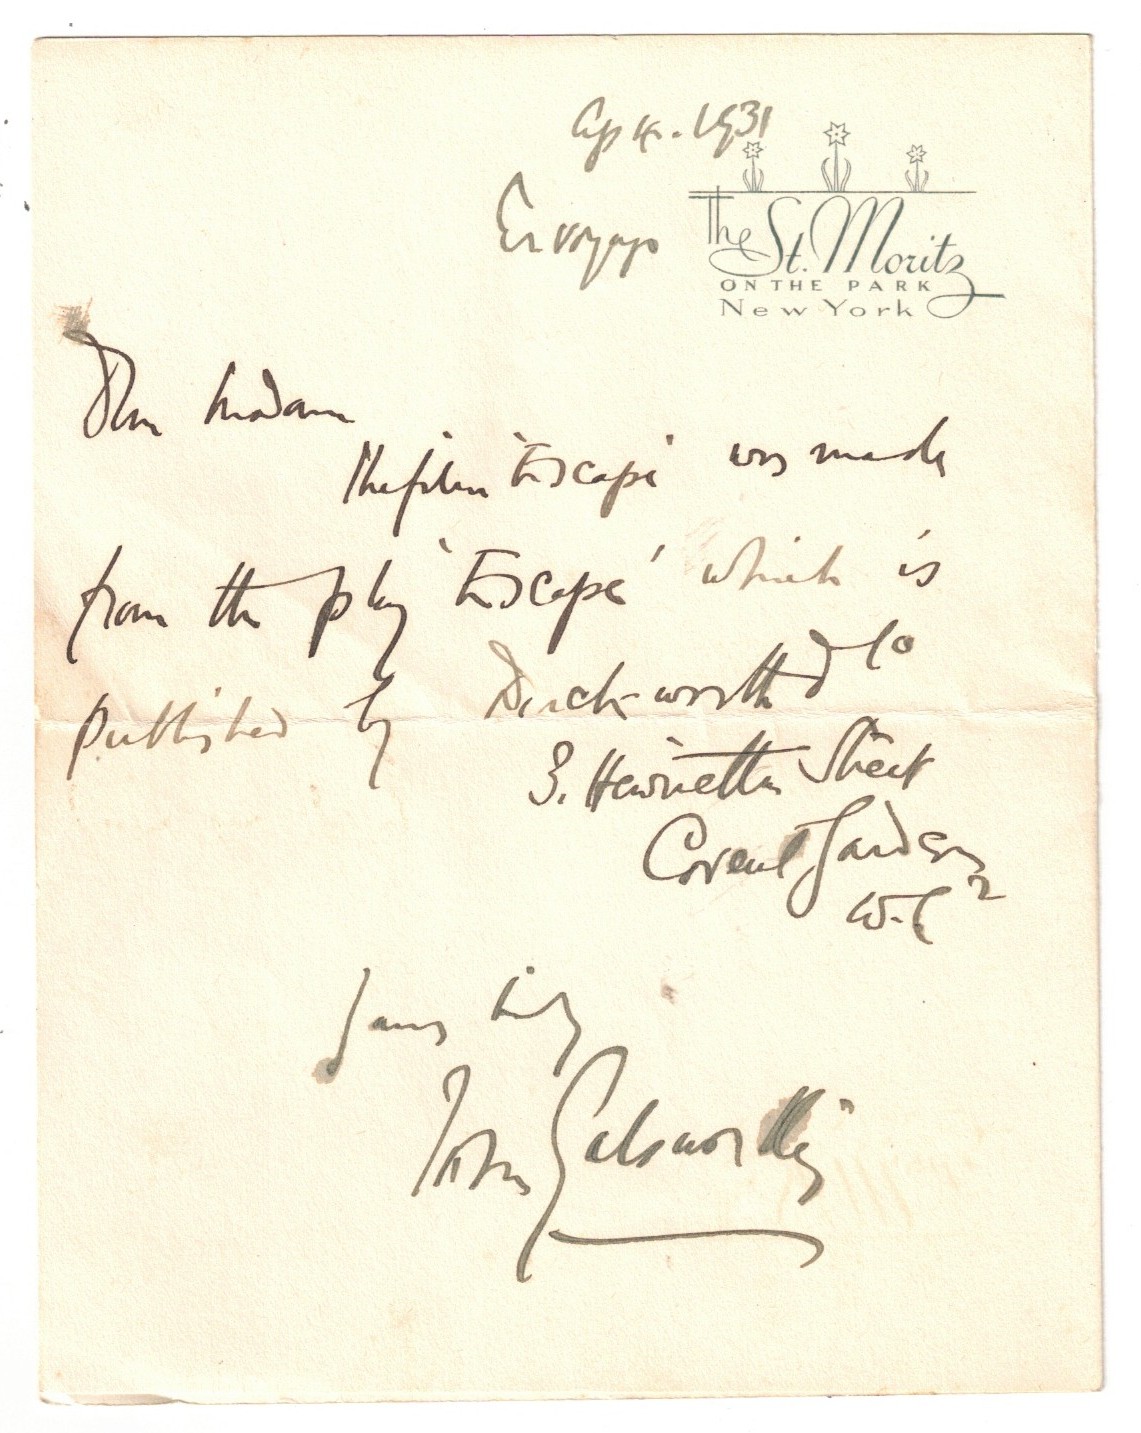 Ap 4. 1931
En voyage
The St. Moritz
ON THE PARK
New York
Dear Madam
The film 'Escape' was made
from the play 'Escape' which is
published by Duckworth & Co
3. Henrietta Street
Covent Garden
W.C 2
Yours truly
John Galsworthy